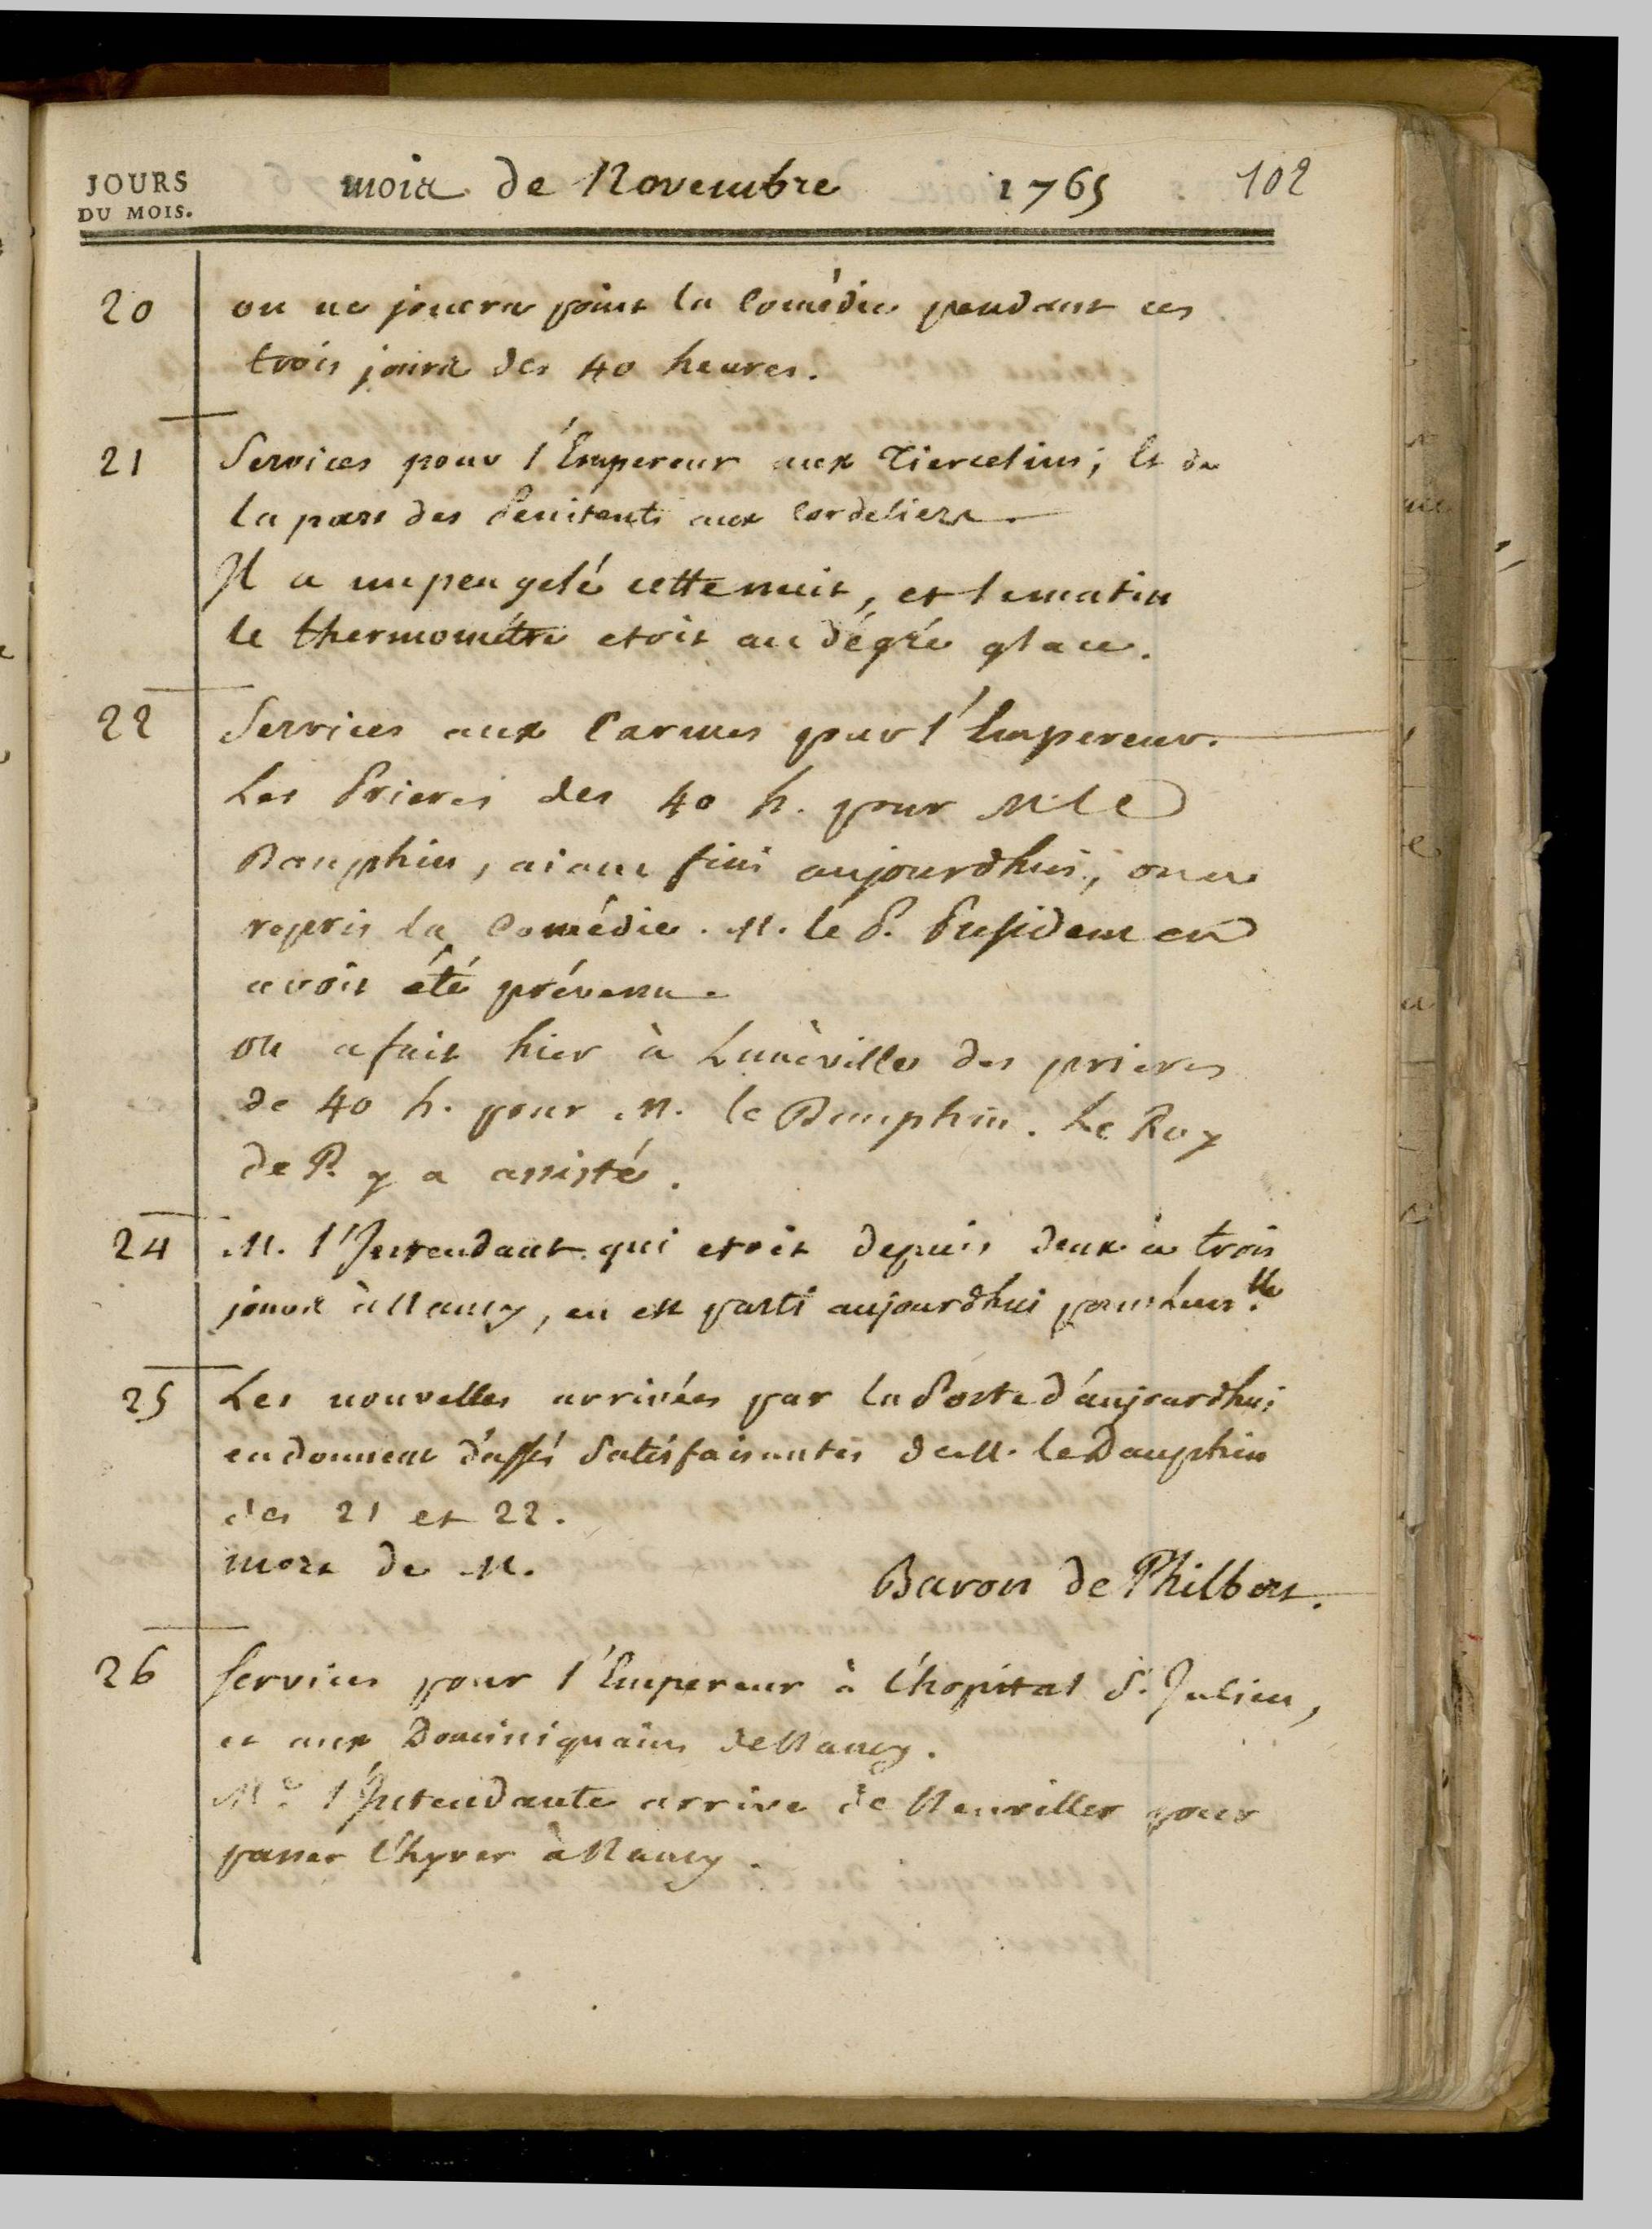 JOURS
DU MOIS.
mois de Novembre 1765 102
20 on ne jouera point la Comédie pendant ces
trois jours des 40 heures.
21 Services pour l'Empereur aux Tiercelins; Et de
la part des Penitents aux Cordeliers
Il a un peu gelé cette nuit, et le matin
le thermométre etoit au dégré glace.
22 Services aux Carmes pour l'Empereur.
Les Prieres des 40 h. pour M. le
Dauphin, aiant fini aujourdhui, on a
repris la Comédie. M. le P. President en
avoit été prévenu.
on a fait hier à Lunéville des prieres
de 40 h. pour M. le Dauphin. Le Roy
de P. y a assisté.
24 M. l'Intendant qui etoit depuis deux à trois
jours à Nancy, en est parti aujourdhui pour Lun.lle
25 Les nouvelles arrivées par la Poste d'aujourdhui
en donnent d'assés satisfaisantes de M. le Dauphin
des 21 et 22.
mort de M. Baron de Philbert.
26 Services pour l'Empereur à l'hopital S. Julien,
et aux Dominiquains de Nancy.
Me l'Intendante arrive de Neuviller pour
passer l'hyver à Nancy.